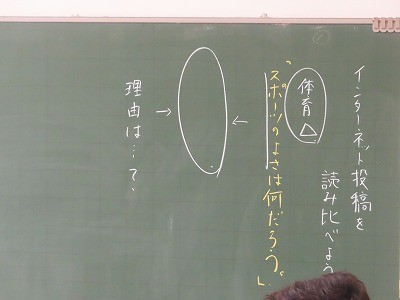 インターネット投稿を
読み比べよう
体育△
「スポーツのよさは何だろう。」
理由は…て、